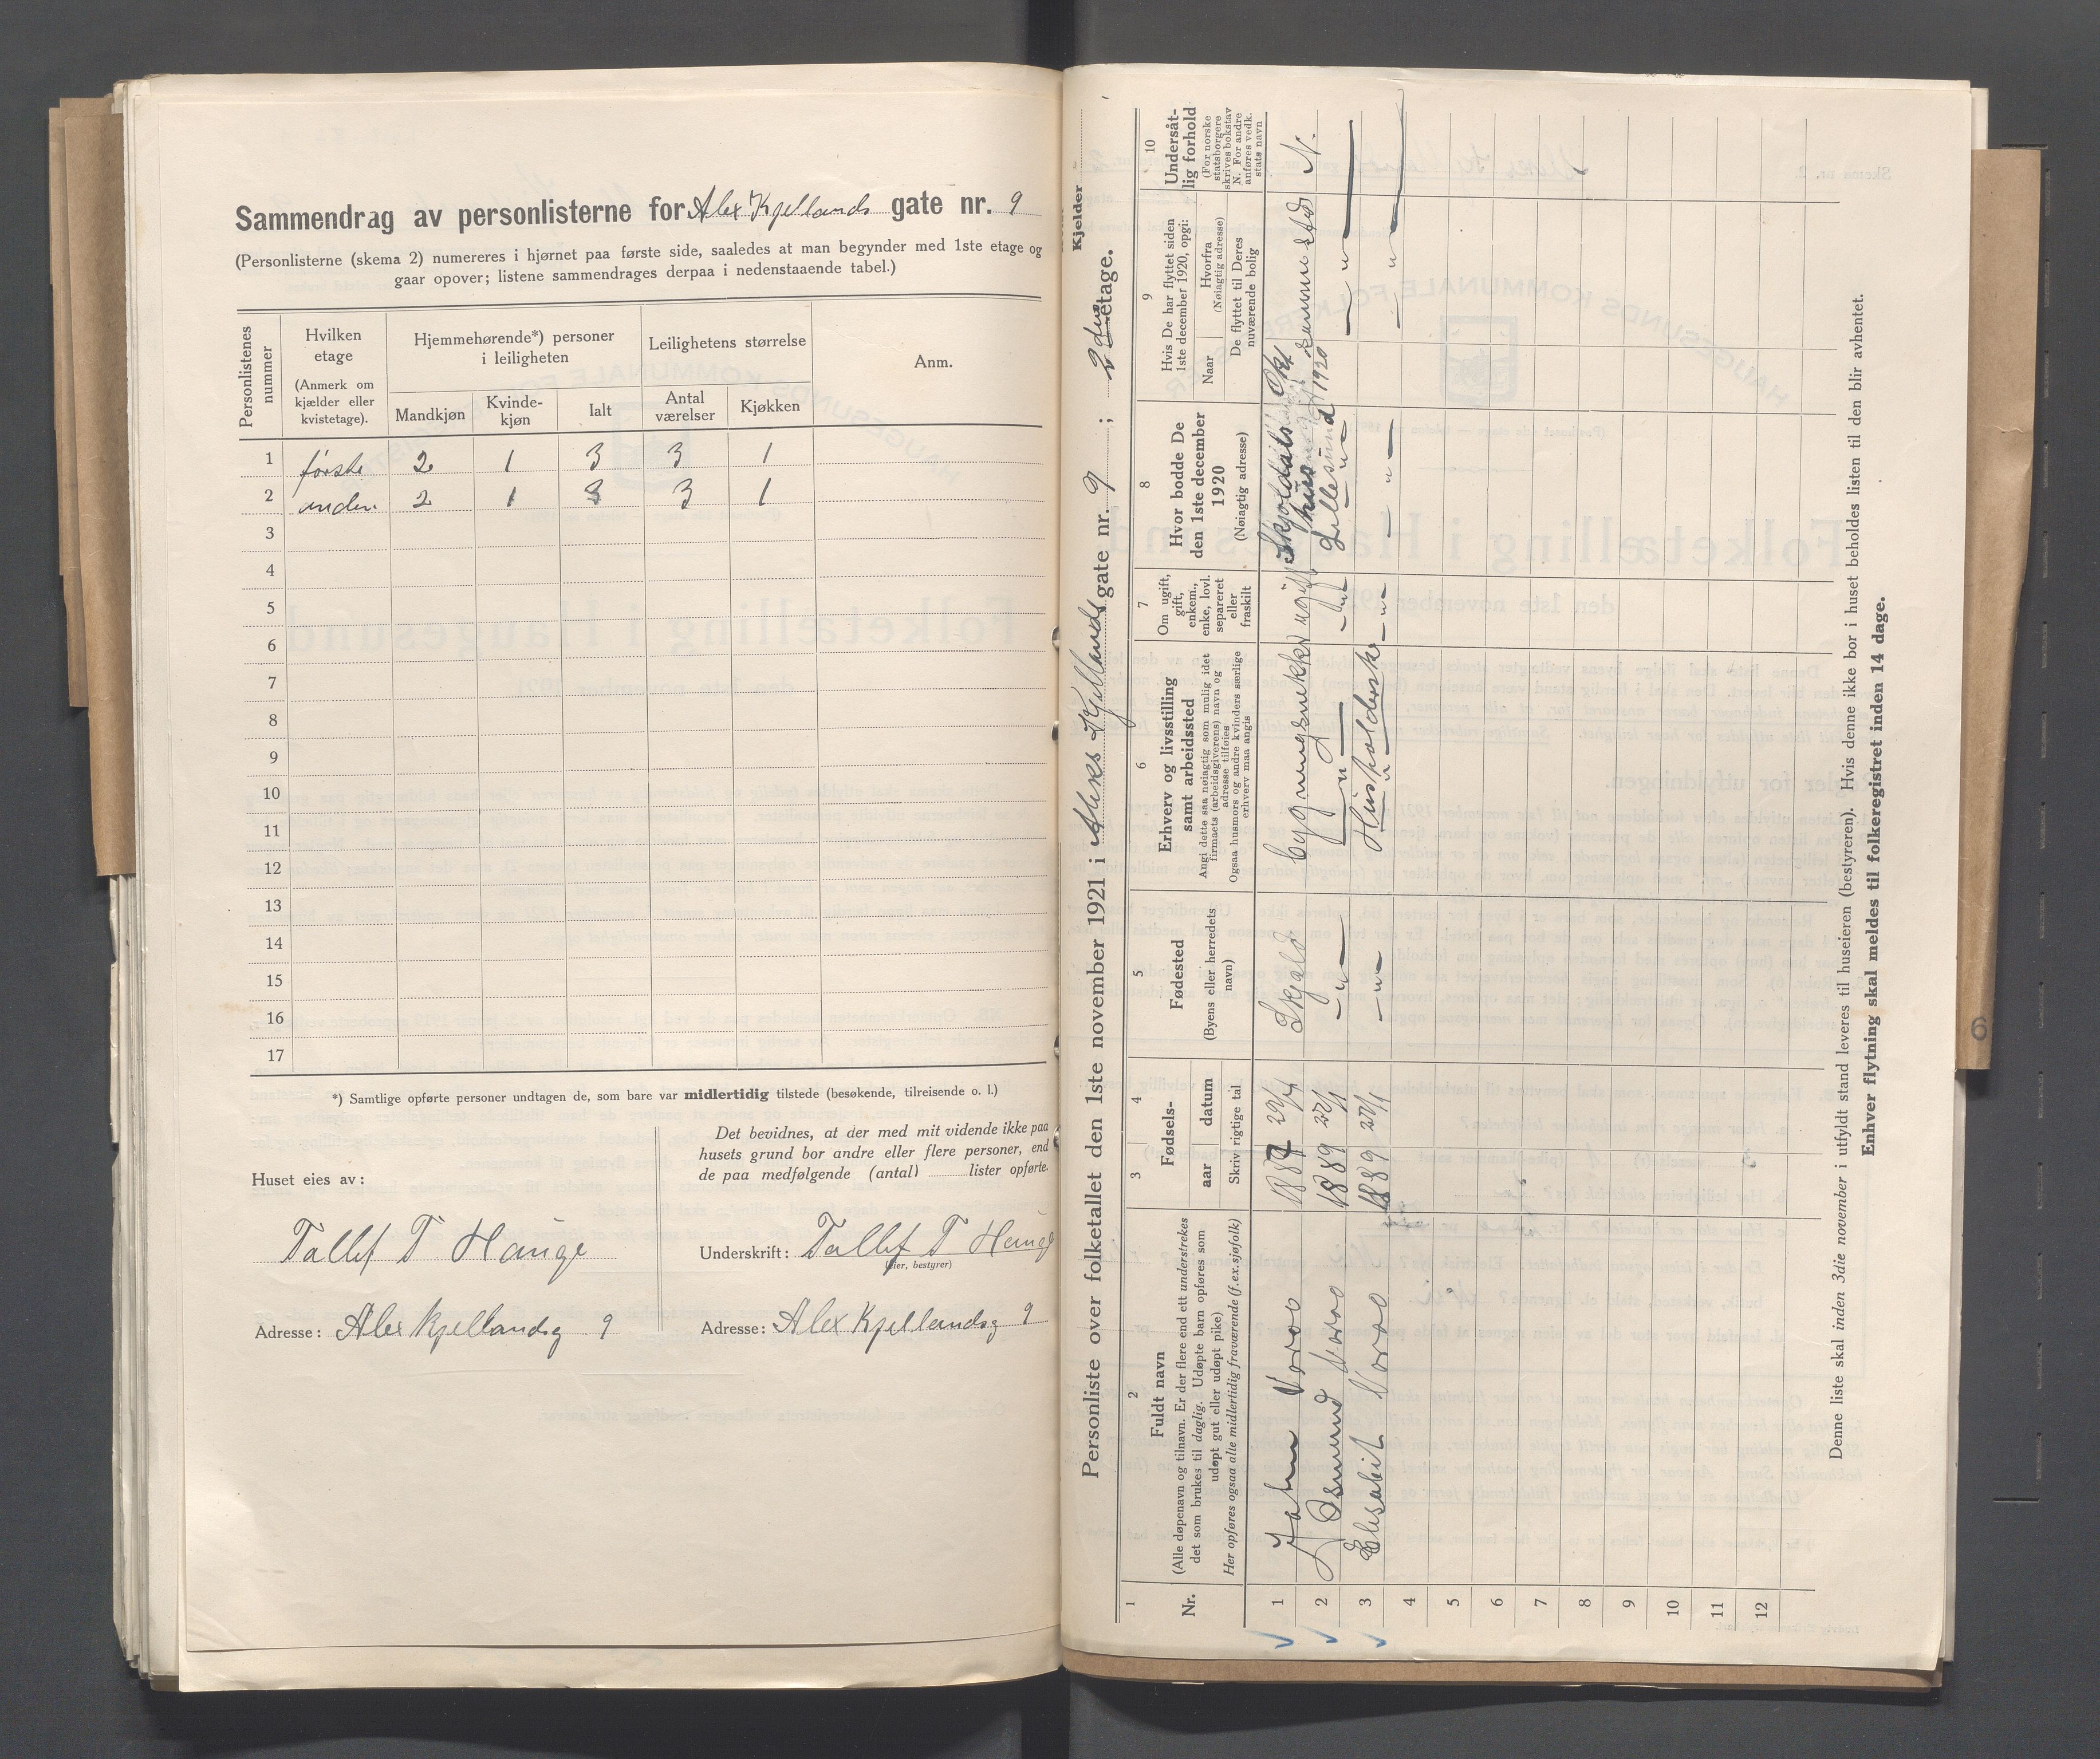 Sammendrag av personlisterne for Alex Kjellands gate nr. 9
(Personlisterne (skema 2) numereres i hjørnet paa første side, saaledes at man begynder med 1ste etage og
gaar opover; listene sammendrages derpaa i nedenstaaende tabel.)
Personlistenes nummer
Hvilken etage
(Anmerk om kjælder eller kvistetage).
Hjemmehørende*) personer i leiligheten
Mandkjøn
Kvinde-kjøn
Ialt
Leilighetens størrelse
Antal værelser
Kjøkken
Anm.
1 første 2 1 3 3 1
2 anden 2 1 3 3 1
3
4
5
6
7
8
9
10
11
12
13
14
15
16
17
*) Samtlige opførte personer undtagen de, som bare var midlertidig tilstede (besøkende, tilreisende o. l.)
Huset eies av:
Tallef T Hauge
Adresse: Alex Kjellandsg 9
Det bevidnes, at der med mit vidende ikke paa
husets grund bor andre eller flere personer, end
de paa medfølgende (antal) lister opførte.
Underskrift: Tallef T Hauge
(eier, bestyrer)
Adresse: Alex Kjellandsg 9
Kjelder
Personliste over folketallet den 1ste november 1921 i Aleks Kjellands gate nr. 9 ; 2den etage.
1
Nr.
2
Fuldt navn
(Alle døpenavn og tilnavn. Er der flere end ett understrekes
det som brukes til daglig. Udøpte barn opføres som
udøpt gut eller udøpt pike)
Her opføres ogsaa alle midlertidig fraværende (f.ex. sjøfolk)
3 4
Fødsels-
aar datum
Skriv rigtige tal
5
Fødested
(Byens eller herredets navn)
6
Erhverv og livsstilling
samt arbeidssted
Angi dette saa nøiagtig som mulig idet
firmaets (arbeidsgiverens) navn og
adresse tilføies
Ogsaa husmors og andre kvinders særlige
erhverv maa angis
7
Om ugift, gift, enkem., enke, lovl. separeret eller fraskilt
8
Hvor bodde De
den 1ste december
1920
(Nøiagtig adresse)
9
Hvis De har flyttet siden
1ste december 1920, opgi:
Naar
Hvorfra
(Nøiagtig adresse)
De flyttet til Deres
nuværende bolig
10
Undersåt-
lig forhold
(For norske
statsborgere
skrives bokstav
N. For andre
anføres vedk.
stats navn
1 John Voraa 1887 29/4 Skjold bygningsnekker ugift Skjoldals hus Okt 1920 samme sted N.
2 Osmund Voraa 1889 22/1 — " — — " — — " — — " — — " —
3 Elisabit Voraa 1889 22/1 — " — Husholderske — " — — " — — " —
4
5
6
7
8
9
10
11
12
Denne liste skal inden 3die november i utfyldt stand leveres til huseieren (bestyreren). Hvis denne ikke bor i huset beholdes listen til den blir avhentet.
Enhver flytning skal meldes til folkeregistret inden 14 dage.
6